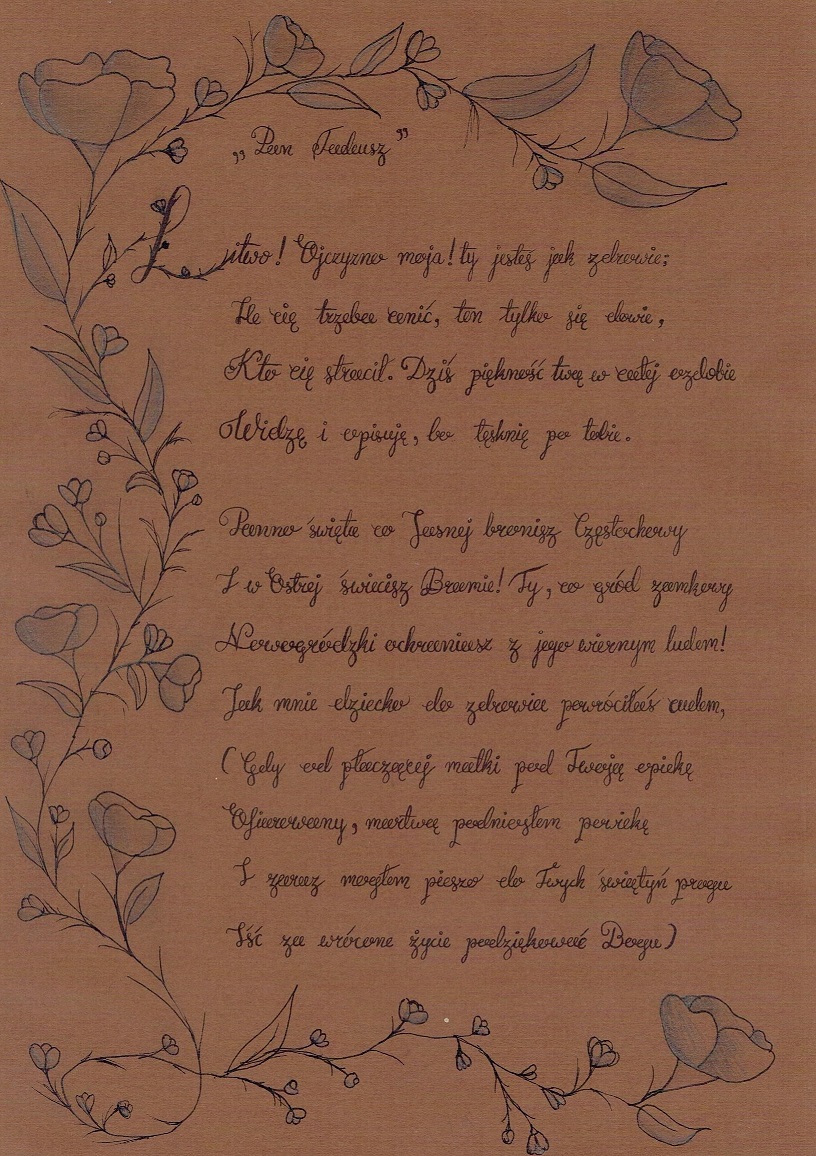 „Pan Tadeusz”
Litwo! Ojczyzno moja! ty jesteś jak zdrowie;
Ile cię trzeba cenić, ten tylko się dowie,
Kto cię stracił. Dziś piękność twą w całej ozdobie
Widzę i opisuję, bo tęsknię po tobie.
Panno święta co Jasnej bronisz Częstochowy
I w Ostrej świecisz Bramie! Ty, co gród zamkowy
Nowogródzki ochraniasz z jego wiernym ludem!
Jak mnie dziecko do zdrowia powróciłaś cudem,
(Gdy od płaczącej matki pod Twoją opiekę
Ofiarowany, martwą podniosłem powiekę
I zaraz mogłem pieszo do Twych świątyń progu
Iść za wrócone życie podziękować Bogu)